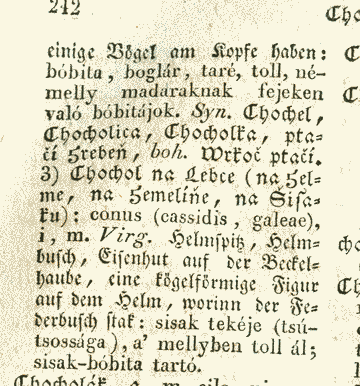 242
einige Vögel am Kopfe haben:
bóbita, boglár, taré, toll, né=
melly madaraknak fejeken
való bóbitájok. Syn. Chochel,
Chocholica, Chocholka, pta=
čí Hrebeň, boh. Wrkoč ptačí.
3) Chochol na Lebce (na Hel=
me, na Hemelíňe, na Šiša=
ku): conus (cassidis, galeae),
i, m. Virg. Helmspitz, Helm=
busch, Eisenhut auf der Beckel=
haube, eine kögelförmige Figur
auf dem Helm, worinn der Fe=
derbusch stak: sisak tekéje (tsú-
tsossága), a' mellyben toll ál;
sisak-bóbita tartó.